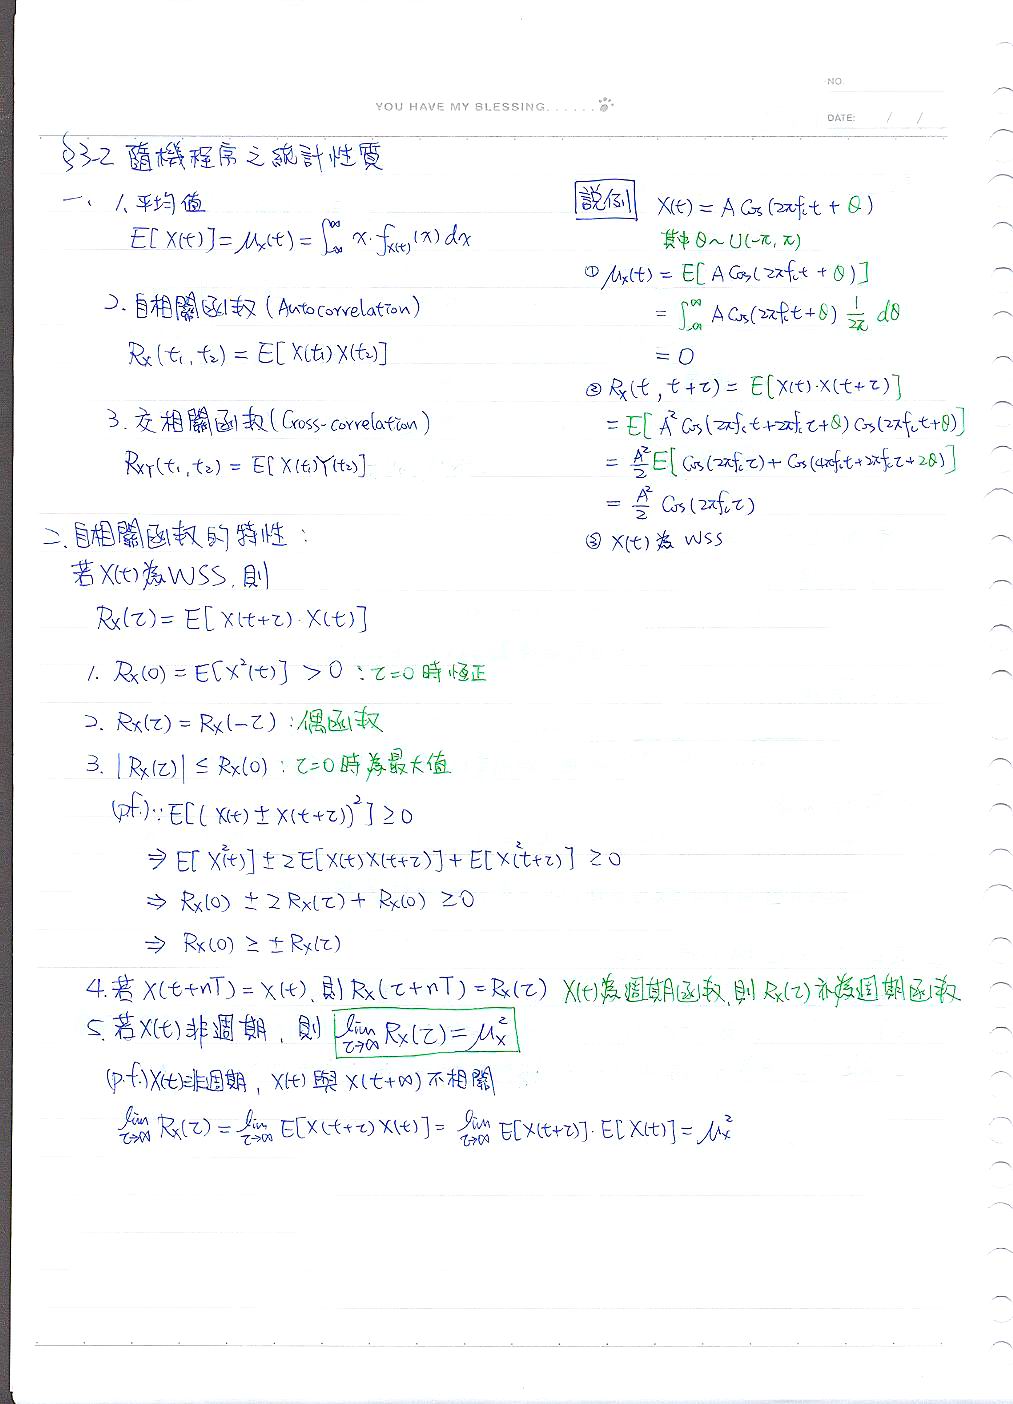 NO.
YOU HAVE MY BLESSING......
DATE: / /
§3-2 隨機程序之統計性質
一、1.平均值
E[X(t)] = μx(t) = ∫_{-∞}^{∞} x·f_{X(t)}(x)dx
2.自相關函數(Autocorrelation)
Rx(t₁,t₂) = E[X(t₁)X(t₂)]
3.交相關函數(Cross-correlation)
Rxy(t₁,t₂) = E[X(t₁)Y(t₂)]
說例 X(t) = A Cos(2πfct + θ)
其中θ~U(-π,π)
① μx(t) = E[A Cos(2πfct + θ)]
= ∫_{-∞}^{∞} A Cos(2πfct+θ) 1/2π dθ
= 0
② Rx(t,t+τ) = E[X(t)·X(t+τ)]
= E[A²Cos(2πfct+2πfcτ+θ)Cos(2πfct+θ)]
= A²/2 E[Cos(2πfcτ)+Cos(4πfct+2πfcτ+2θ)]
= A²/2 Cos(2πfcτ)
③ X(t)為WSS
二.自相關函數的特性:
若X(t)為WSS,則
Rx(τ) = E[X(t+τ)·X(t)]
1. Rx(0) = E[X²(t)] > 0 :τ=0時恆正
2. Rx(τ) = Rx(-τ) :偶函數
3. |Rx(τ)| ≤ Rx(0) :τ=0時為最大值
(pf.)∵E[(X(t)±X(t+τ))²] ≥ 0
⇒ E[X²(t)]±2E[X(t)X(t+τ)]+E[X²(t+τ)] ≥ 0
⇒ Rx(0) ±2Rx(τ)+ Rx(0) ≥ 0
⇒ Rx(0) ≥ ±Rx(τ)
4.若X(t+nT)=X(t),則Rx(τ+nT)=Rx(τ) X(t)為週期函數,則Rx(τ)亦為週期函數
5.若X(t)非週期,則 lim_{τ→∞} Rx(τ) = μx²
(p.f.)X(t)非週期,X(t)與X(t+∞)不相關
lim_{τ→∞} Rx(τ) = lim_{τ→∞} E[X(t+τ)X(t)] = lim_{τ→∞} E[X(t+τ)]·E[X(t)] = μx²